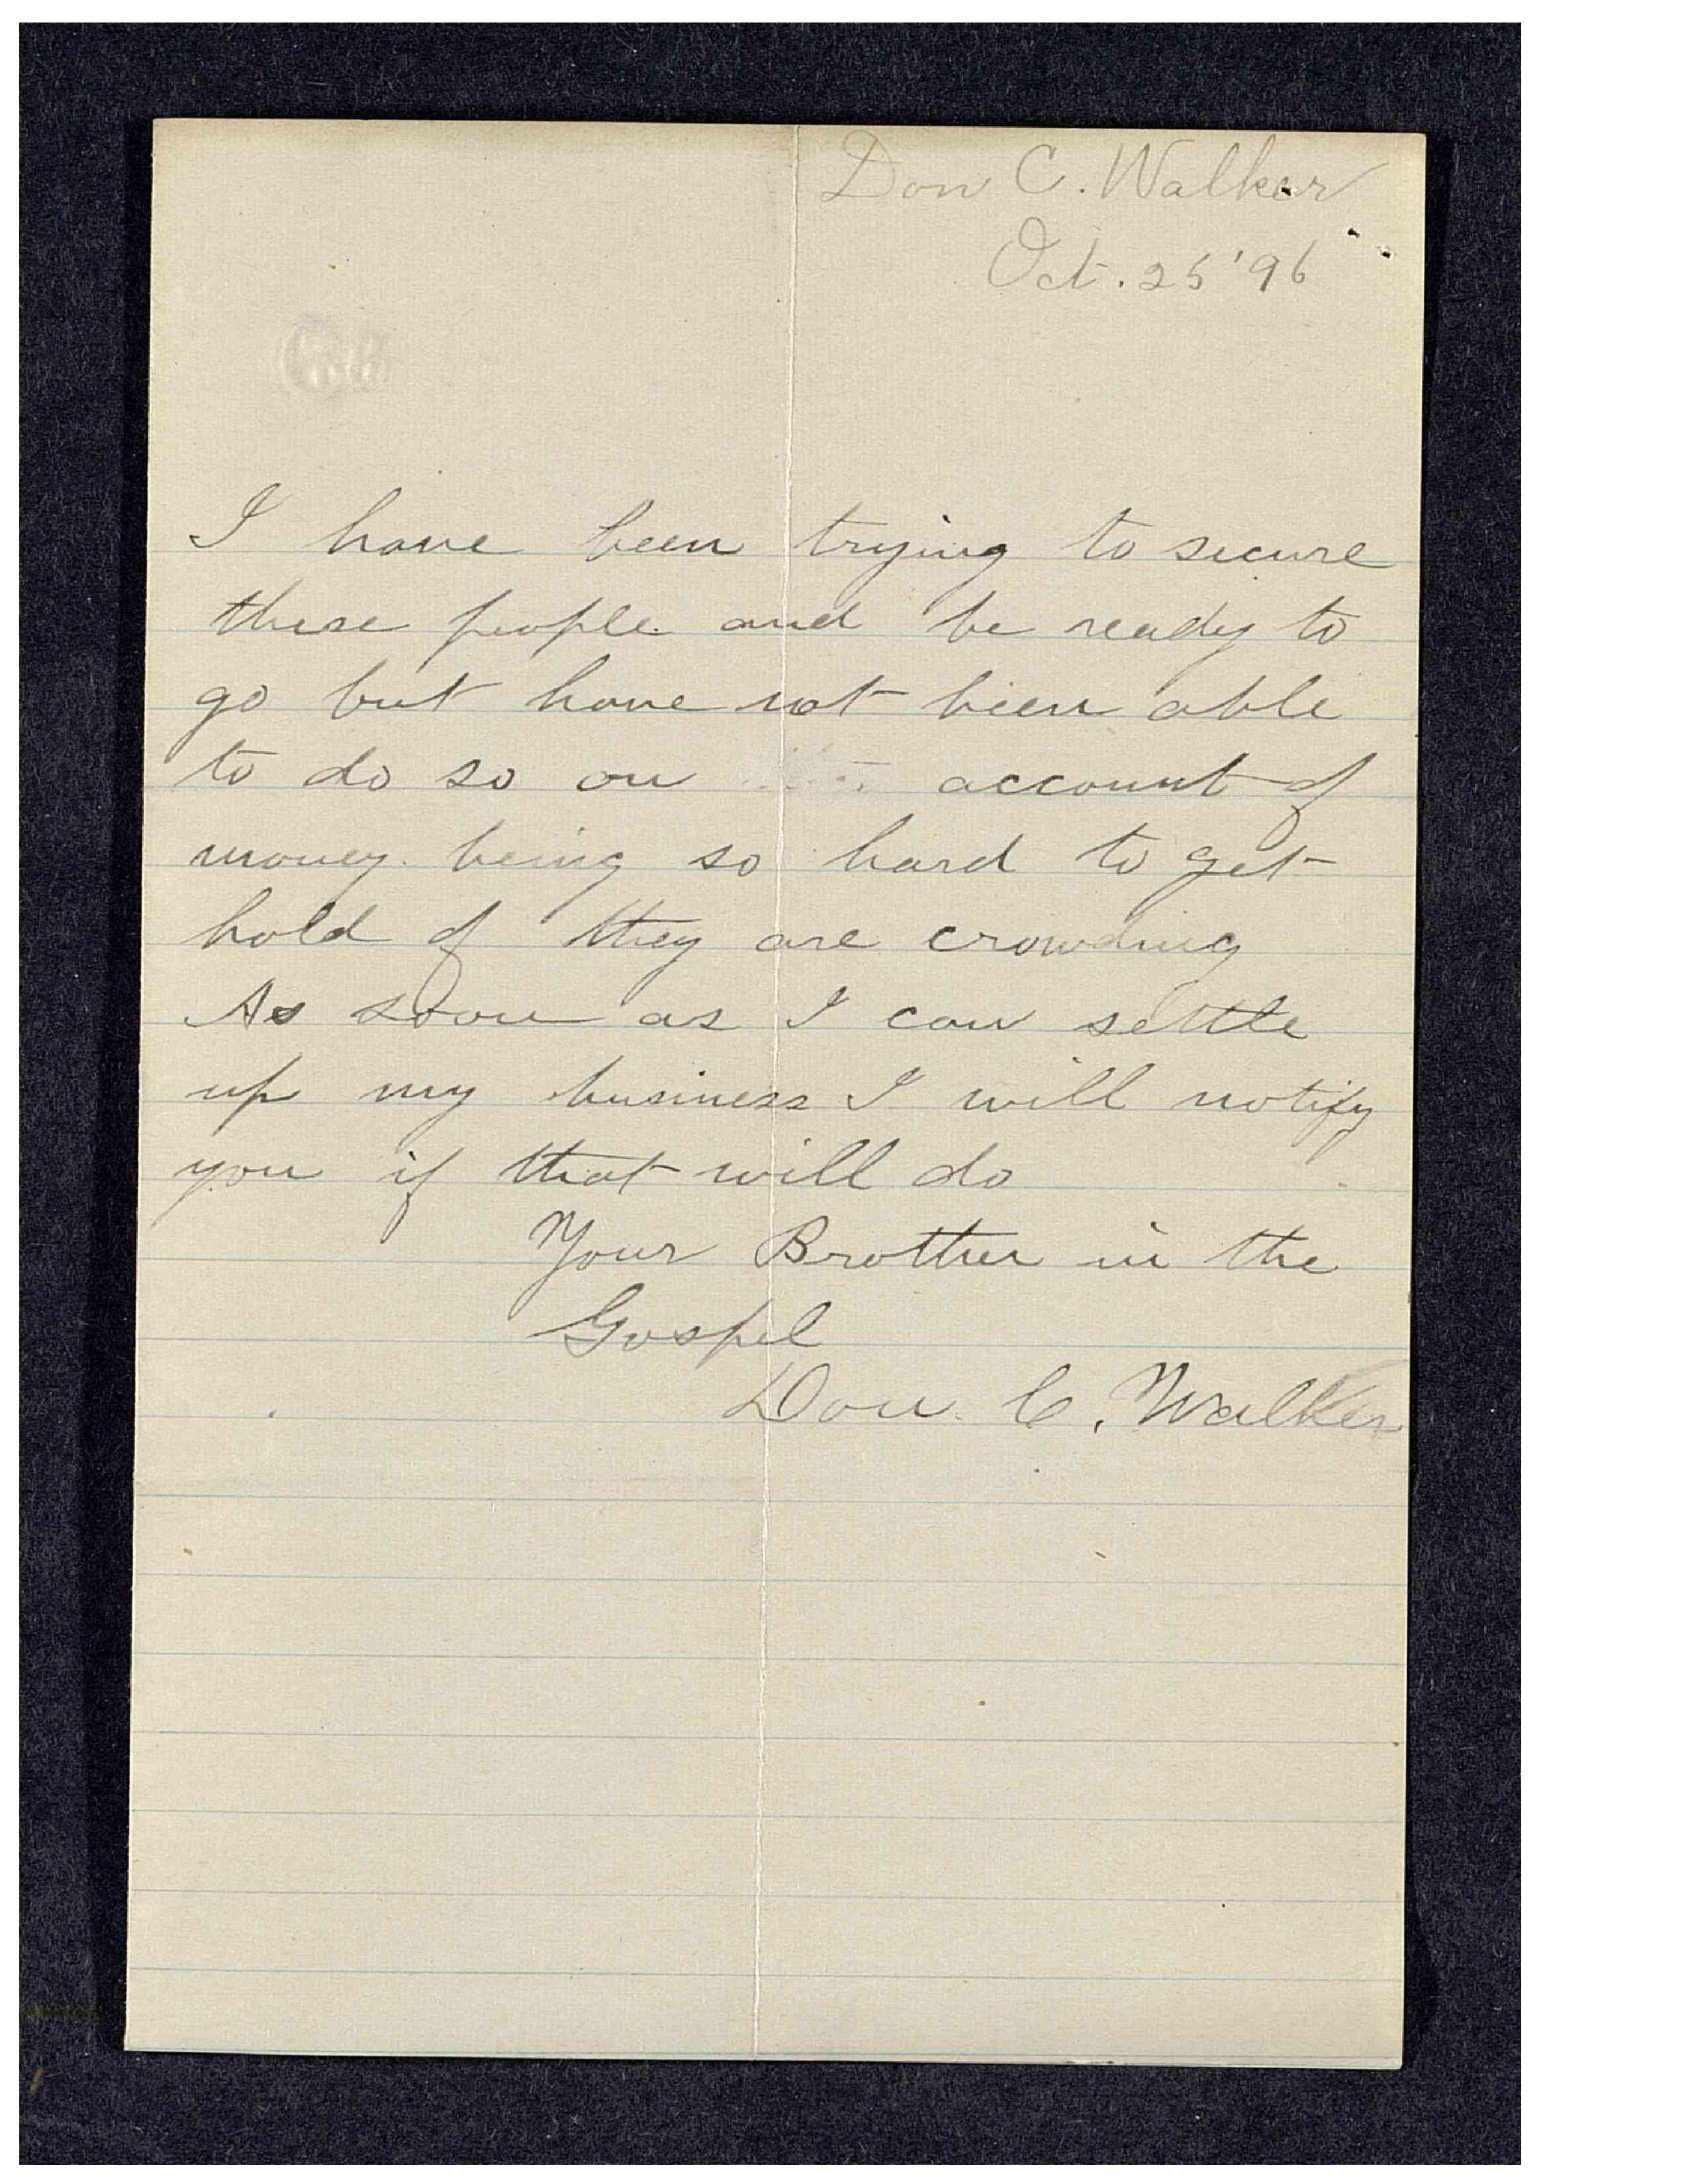 Don C. Walker
Oct. 25 '96
I have been trying to secure
these people and be ready to
go but have not been able
to do so on account of
money being so hard to get
hold of they are crowding
As soon as I can settle
up my business I will notify
you if that will do
Your Brother in the
Gospel
Don C. Walker